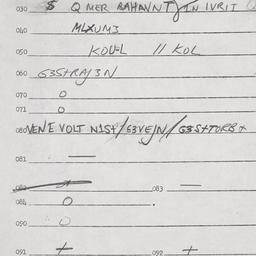 030 $ Q MER BAHAVNT IN IVRIT
040 MLXUM3
050 KOU-L // KOL
060 G3S+RAJ3N
070 O
071 O
080 VENE VOLT N1S+/G3VEJN/G3S+TORB+
081 —
082 083 —
084 O
090 O
091 + 092 +